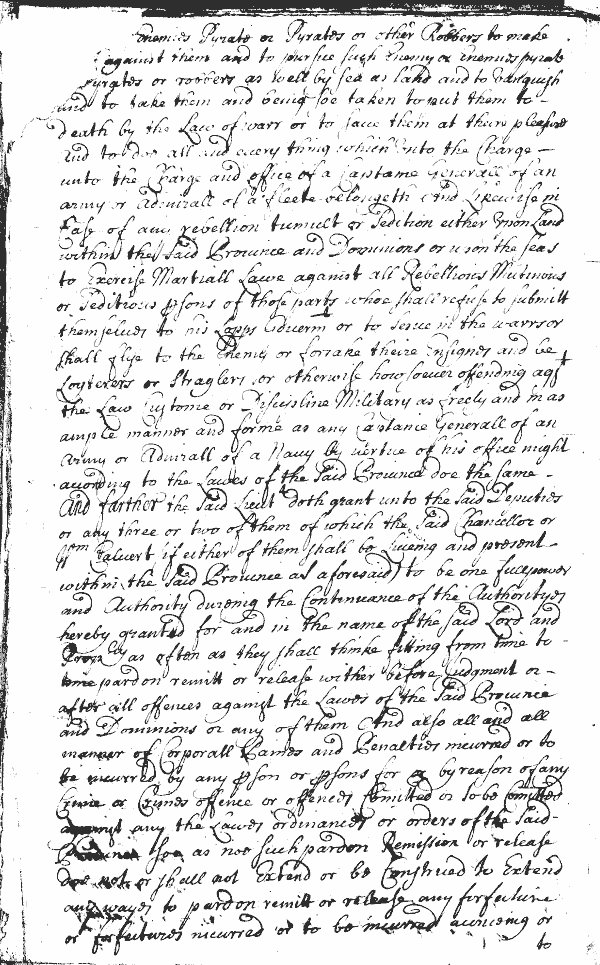 Enemies Pyrate or Pyrates or other Robbers to make
against them and to pursue such Enemy or Enemies pyrate
pyrates or robbers as well by sea as land and to vanquish
and to take them and being soe taken to put them to
death by the Law of warr or to save them at theire pleasure
And to doe all and every thing which unto the Charge
unto the Charge and office of a Captaine Generall of an
army or Admirall of a fleete belongeth And Likewise in
Case of any rebellion tumult or Sedition either upon Land
within the Said Province and Dominions or upon the seas
to Exercise Martiall Lawe against all Rebellious Mutinous
or Seditious psons of those parts whoe shall refuse to submitt
themselves to his Lopps Governmt or to serve in the warrs or
shall flye to the Enemy or forsake theire Ensignes and be
Loyterers or Straglers or otherwise howsoever offending agt
the Law Custome or Discipline Military as freely and in as
ample manner and forme as any Captaine Generall of an
Army or Admirall of a Navy by vertue of his office might
according to the Lawes of the Said Province doe the same
And farther the Said Lieut doth grant unto the Said Deputies
or any three or two of them of which the Said Chancellor or
Wm Calvert if either of them shall be liveing and present
within the Said Province as aforesaid) to be one full power
and Authority dureing the Continuance of the Authorityes
hereby granted for and in the name of the said Lord and
Propry as often as they shall thinke fitting from time to
time pardon remitt or release wither before Judgment or
after all offences against the Lawes of the Said Province
and Dominions or any of them And also all and all
manner of Corporall Paines and Penalties incurred or to
be incurred by any pson or psons for or by reason of any
Crime or Crimes offence or offences Comitted or to be Comitted
against any the Lawes ordinances or orders of the Said
Province soe as noe such pardon Remission or release
doe not or shall not Extend or be Construed to Extend
any wayes to pardon remitt or release any forfeiture
or forfeitures incurred or to be incurred accrueing or
to